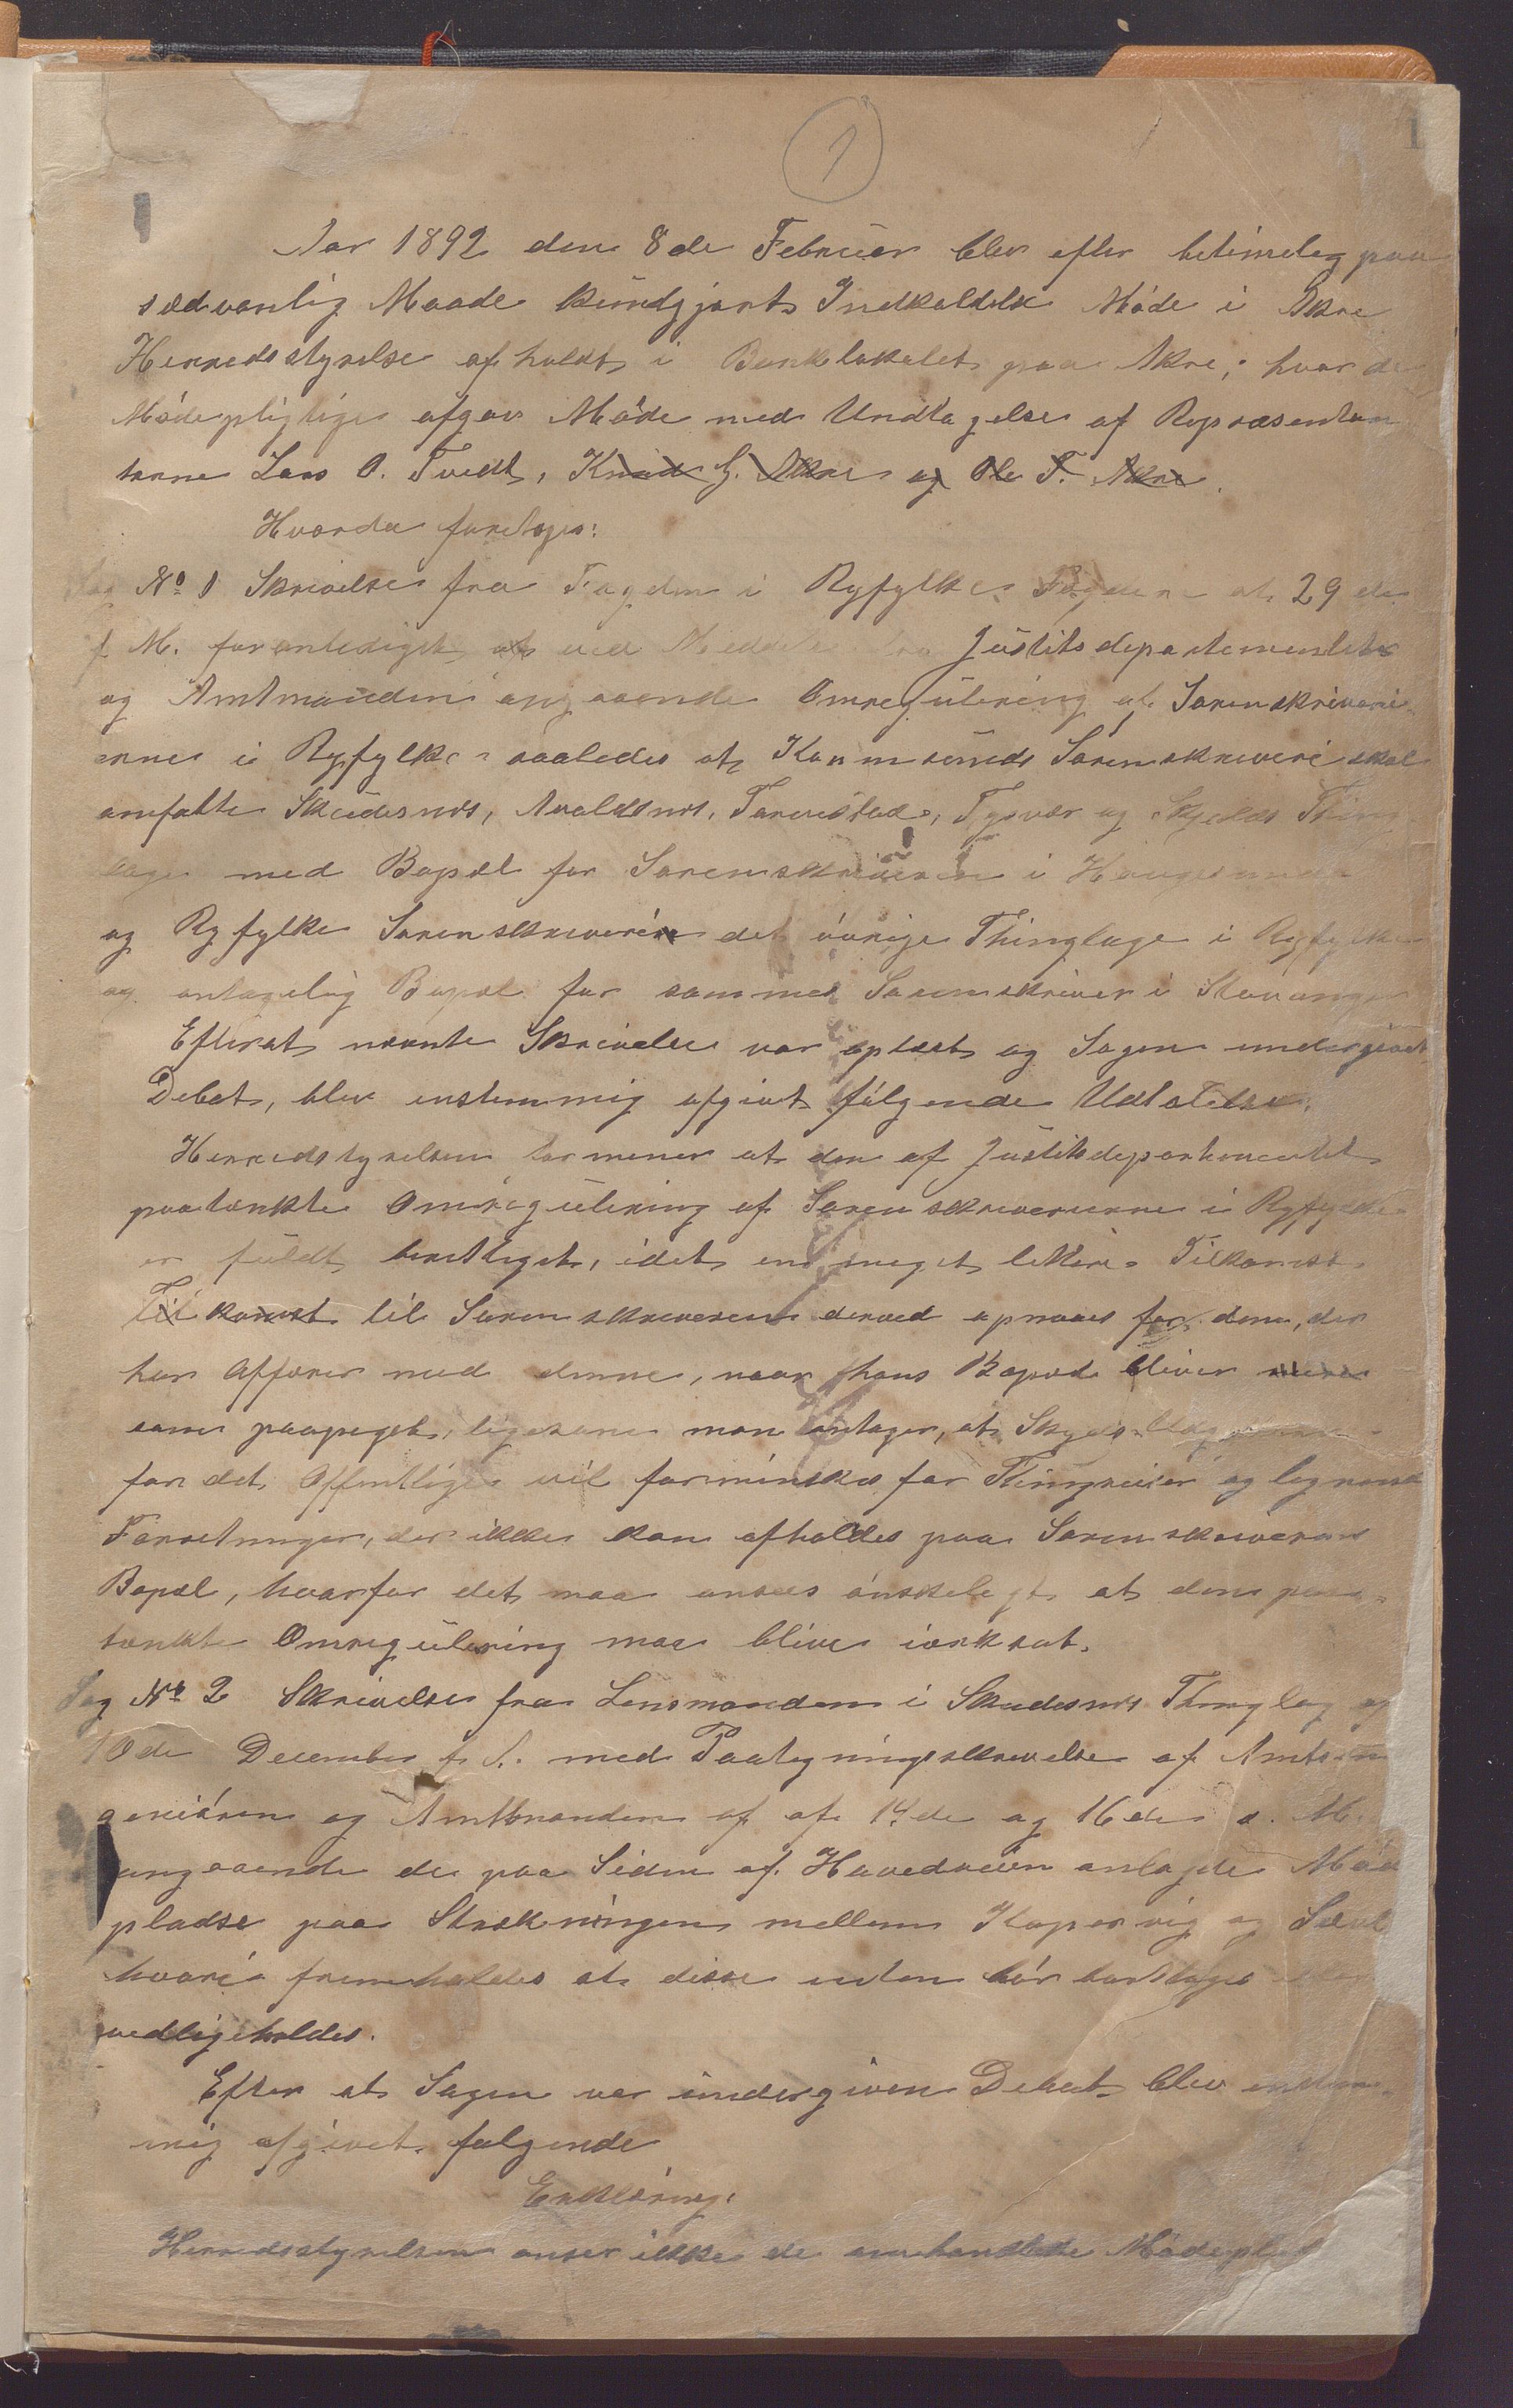 1
1
Aar 1892 den 8de Februar blev efter betimelig paa
sædvanlig Maade kundgjort Indkaldelse Møde i Akre
Herredsstyrelse afholdt i Banklokalet paa Akre, hvor de
Mødepligtige afgav Møde med Undtagelse af Repræsentan
terne Lars O. Tvedt, Knud G. Akre og Ole T. Akre.
Hvorda foretoges:
Sag No 1 Skrivelse fra Fogden i Ryfylke Fogderi af 29de
f. M. foranlediget af ved Justitsdepartementet
og Amtmanden angaaende Omregulering af Sorenskriveri
erne i Ryfylke saaledes at Karmsunds Sorenskriveri skal
omfatte Skudesnes, Avaldsnes, Torvestad, Tysvær og Skjolds Thing
lage med Bopæl for Sorenskriveren i Haugesund
og Ryfylke Sorenskriveri det øvrige Thinglage i Ryfylke
og antagelig Bopæl for sammes Sorenskriver i Stavanger
Efterat nævnte Skrivelse var oplæst og Sagen undergivet
Debat, blev enstemmig afgivet følgende Udtalelse.
Herredstyrelsen formener at den af Justitsdepartementet
paatænkte Omregulering af Sorenskriverierne i Ryfylke
er fuldt berettiget, idet en meget lettere Tilkomst
Tilkomst til Sorenskriveren derved opnaaes for dem, der
har Affærer med denne, naar hans Bopæl bliver
som paapeget, ligesom man antager, at
for det Offentlige vil formindskes for Thingreiser og lignende
Forretninger, der ikke kan afholdes paa Sorenskriverens
Bopæl, hvorfor det maa ansees ønskeligt at den paa-
tænkte Omregulering maa blive iværksat.
Sag No 2 Skrivelse fra Lensmanden i Skudesnes Thinglag af
10de December f. A. med Paategningsskrivelse af Amtsin
geniøren og Amtmanden af af 14de og 16de s. M.
angaaende de paa Siden af Hovedveien anlagde Møde
pladse paa Strækningen mellem Kopervig og
hvori fremholdes at disse enten bør borttages eller
vedligeholdes.
Efter at Sagen var undergiven Debat blev enstem-
mig afgivet følgende
Erklæring:
Herredsstyrelsen anser ikke de omhandlede Mødeplad